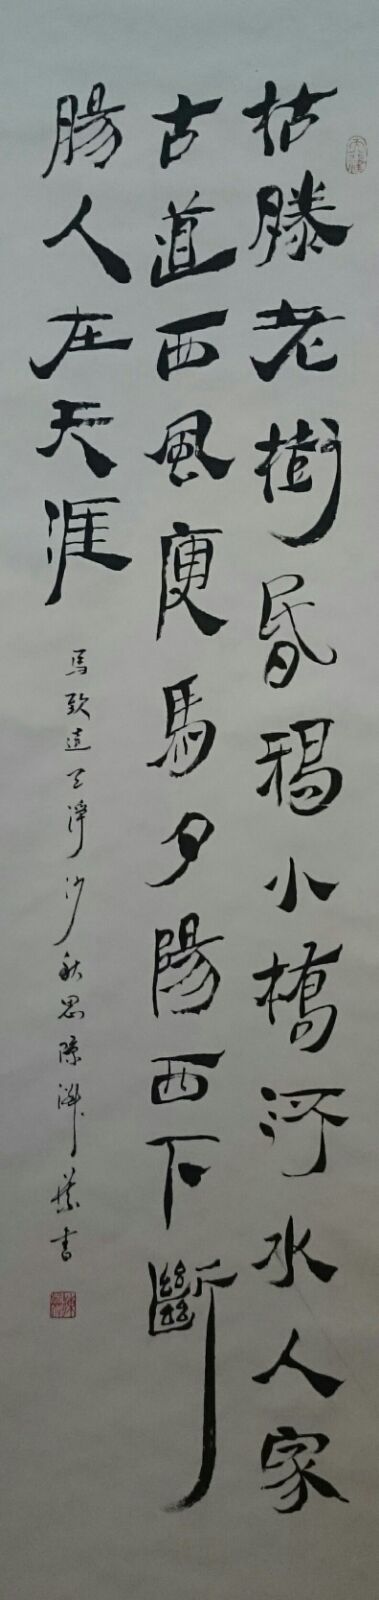 枯滕老樹昏鴉小橋河水人家
古道西風瘦馬夕陽西下斷
腸人在天涯
馬致遠天淨沙秋思陳書